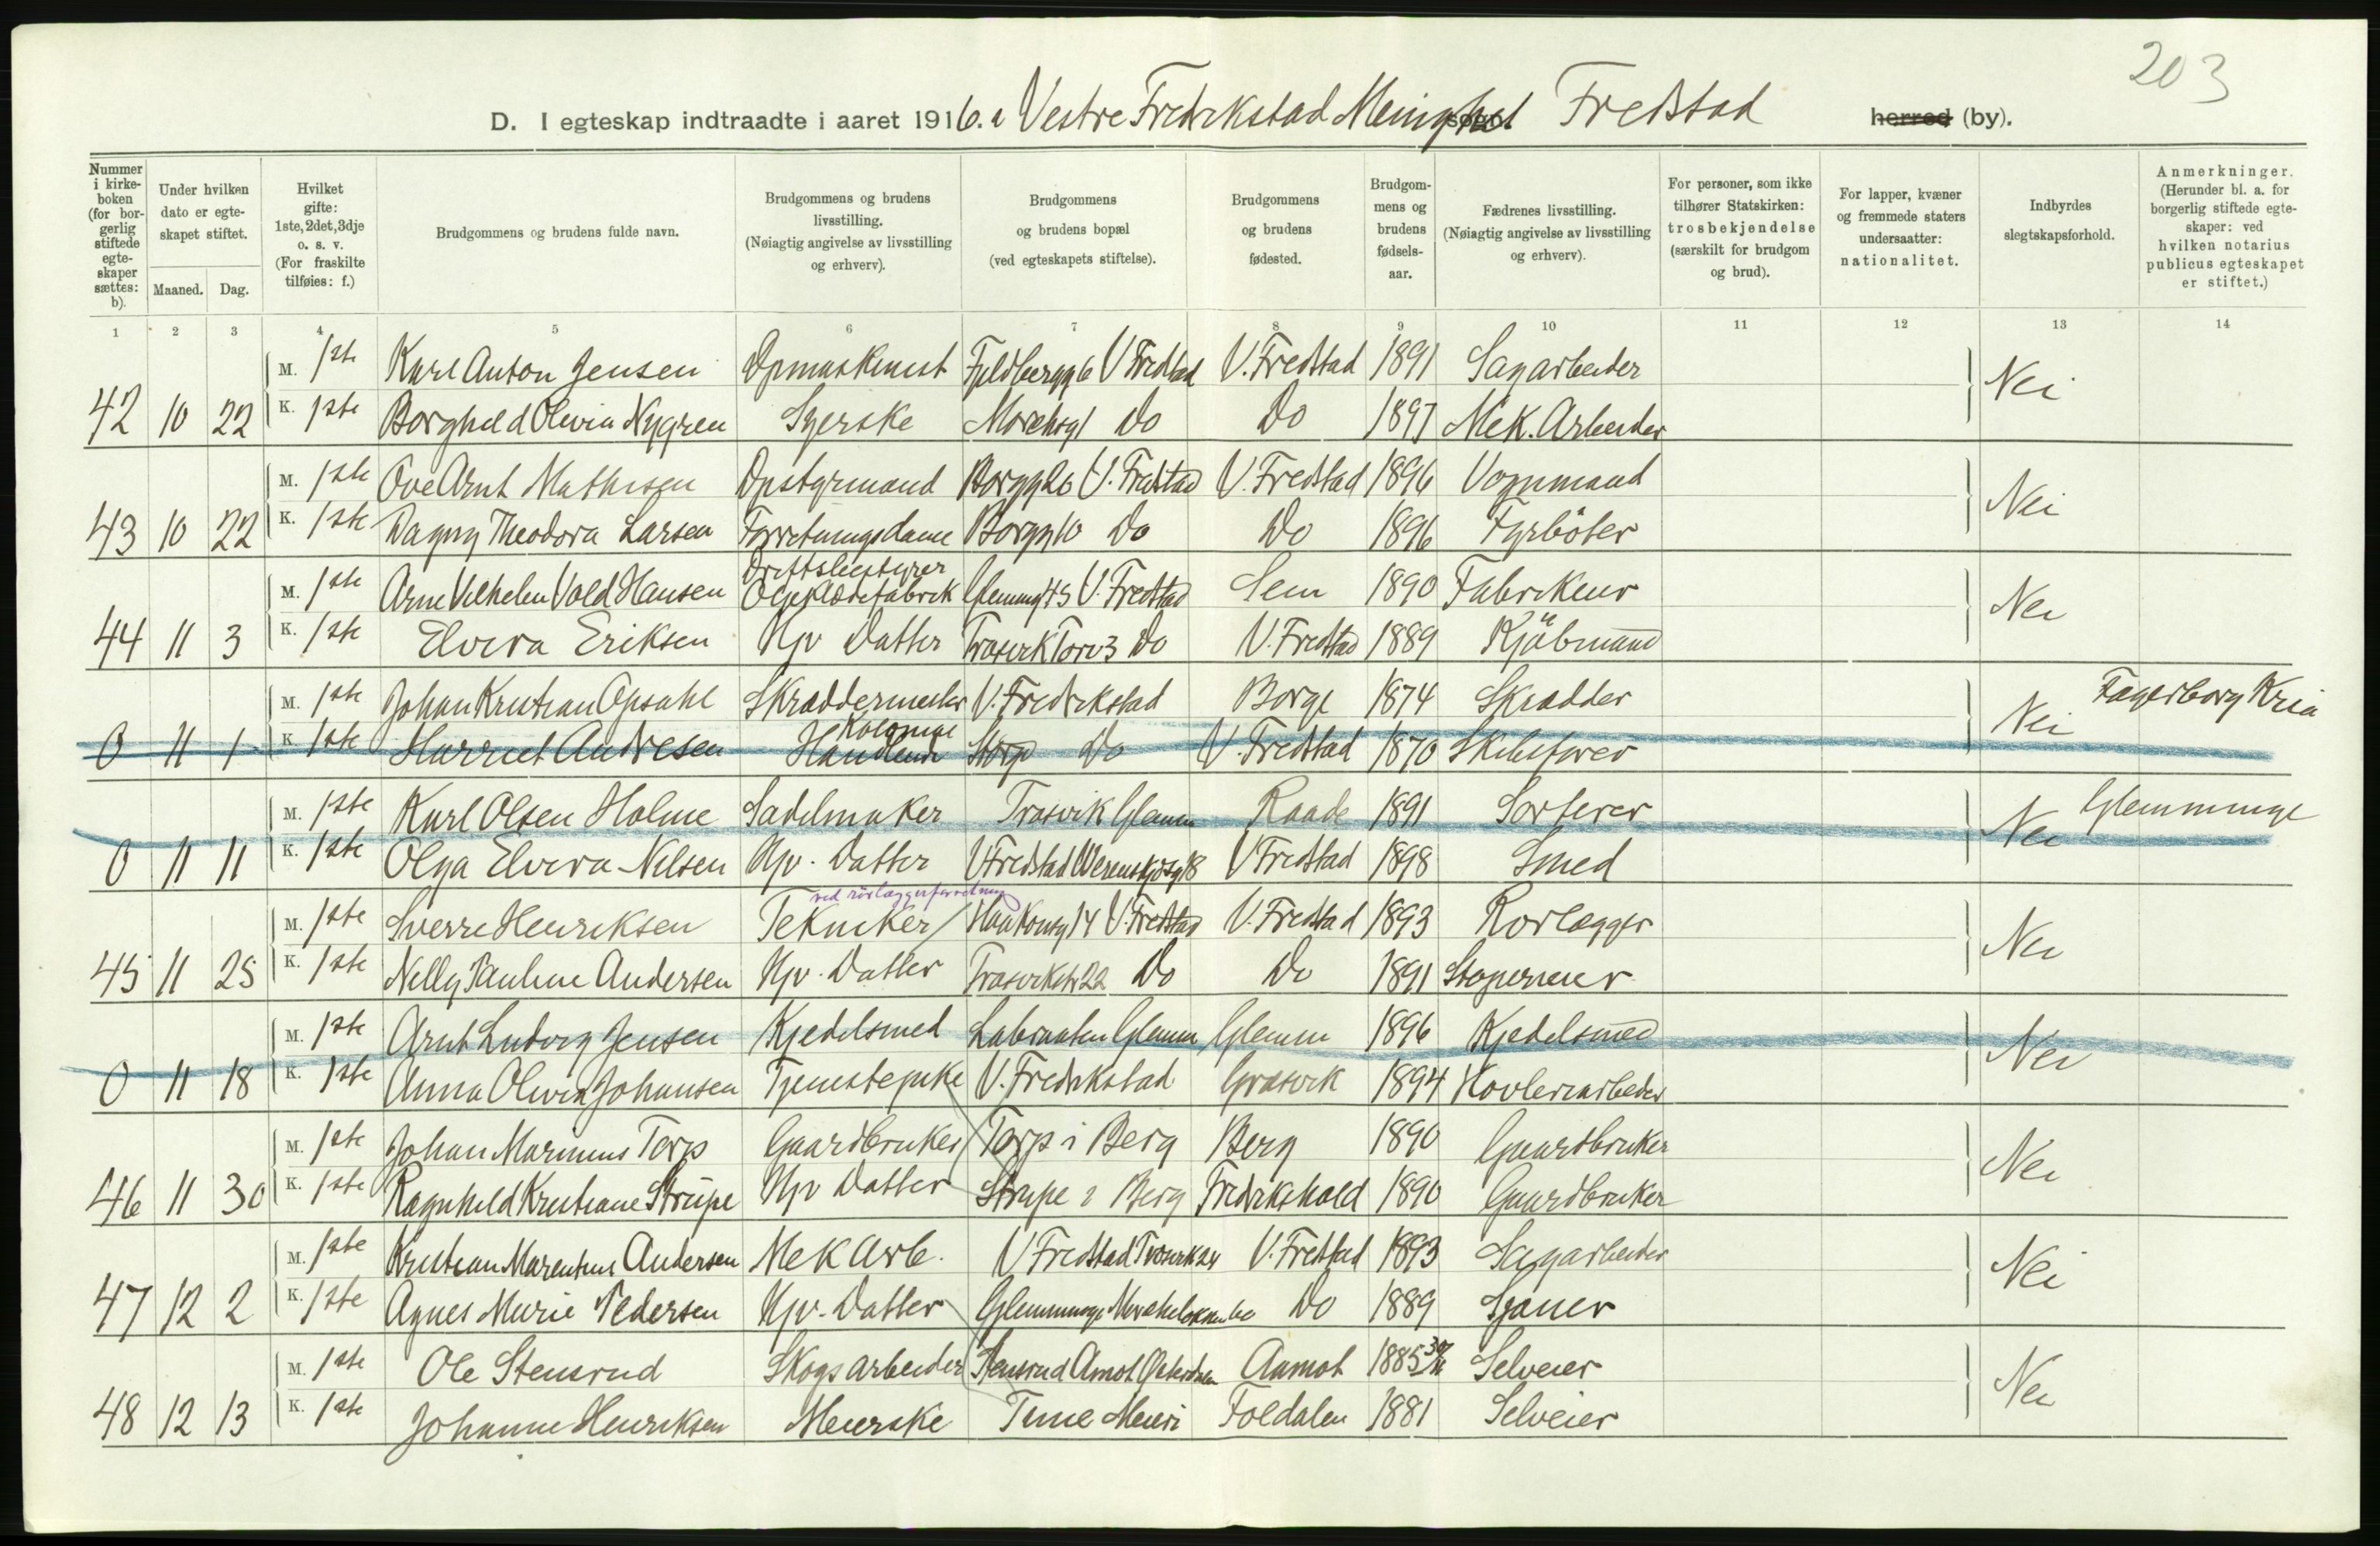 203
D. I egteskap indtraadte i aaret 1916. i Vestre Fredrikstad Menighet sogn. Fredstad herred (by).
Nummer i kirkeboken (for borgerlig stiftede egteskaper sættes: b).
Under hvilken dato er egteskapet stiftet.
Maaned. Dag.
Hvilket gifte: 1ste, 2det, 3dje o. s. v. (For fraskilte tilføies: f.)
Brudgommens og brudens fulde navn.
Brudgommens og brudens livsstilling. (Nøiagtig angivelse av livsstilling og erhverv).
Brudgommens og brudens bopæl (ved egteskapets stiftelse).
Brudgommens og brudens fødested.
Brudgommens og brudens fødselsaar.
Fædrenes livsstilling. (Nøiagtig angivelse av livsstilling og erhverv).
For personer, som ikke tilhører Statskirken: trosbekjendelse (særskilt for brudgom og brud).
For lapper, kvæner og fremmede staters undersaatter: nationalitet.
Indbyrdes slegtskapsforhold.
Anmerkninger. (Herunder bl. a. for borgerlig stiftede egteskaper: ved hvilken notarius publicus egteskapet er stiftet.)
1 2 3 4 5 6 7 8 9 10 11 12 13 14
M. 1ste Karl Anton Jensen Dpmaskinist V Fredstad V. Fredstad 1891 Sagarbeider
42 10 22 K. 1ste Borghild Olivia Nygren Syerske Do Do 1897 Mek. Arbeider Nei
M. 1ste Ove Arnt Mathisen Dpstyrmand Borgg 26 V. Fredstad V. Fredstad 1896 Vognmand
43 10 22 K. 1ste Dagny Theodora Larsen Forretningsdame Borgg 10 Do Do 1896 Fyrböter Nei
Driftsbestyrer
M. 1ste Arne Vilhelm Vold Hansen Oljeklædefabrik Glemmg 45 V. Fredstad Sem 1890 Fabrikeur
44 11 3 K. 1ste Elvira Eriksen Hjv Datter Trosvik Torv 3 Do V. Fredstad 1889 Kjöbmand Nei
M. 1ste Johan Kristian Opsahl Skræddermester V. Fredrikstad Borge 1874 Skrædder Fagerborg Kria
Kolonial
0 11 1 K. 1ste Harriet Andresen Handlende Storg Do V. Fredstad 1870 Skibsfører Nei
M. 1ste Karl Olsen Holme Sadelmaker Trosvik Glemm Raade 1891 Sorterer Glemminge
0 11 11 K. 1ste Olga Elvira Nilsen Hjv. Datter V Fredstad Werenskjoldg 18 V Fredstad 1898 Smed Nei
ved rörlæggerforretning
M. 1ste Sverre Henriksen Tekniker Haakonsg 14 V. Fredstad V. Fredstad 1893 Rörlægger
45 11 25 K. 1ste Nelly Pauline Andersen Hjv. Datter Trosvikstr 22 Do Do 1891 Støpereier Nei
M. 1ste Arnt Ludvig Jensen Kjedelsmed Labraaten Glemm Glemm 1896 Kjedelsmed
0 11 18 K. 1ste Anna Olivia Johansen Tjenestepike V. Fredrikstad Græsvik 1894 Høvleriarbeider Nei
M. 1ste Johan Marinius Torp Gaardbruker Torp i Berg Berg 1890 Gaardbruker
46 11 30 K. 1ste Ragnhild Kristiane Strupe Hjv Datter Strupe i Berg Fredrikshald 1890 Gaardbruker Nei
M. 1ste Kristian Marentius Andersen Mek Arb. V Fredstad Trosvik 24 V. Fredstad 1893 Sagarbeider
47 12 2 K. 1ste Agnes Marie Pedersen Hjv. Datter Glemminge Do 1889 Sjauer Nei
M. 1ste Ole Stensrud Skogsarbeider Stensrud Amot Østerdalen Aamot 1885 30/11 Selveier
48 12 13 K. 1ste Johanne Henriksen Meierske Tune Meieri Foldalen 1881 Selveier Nei